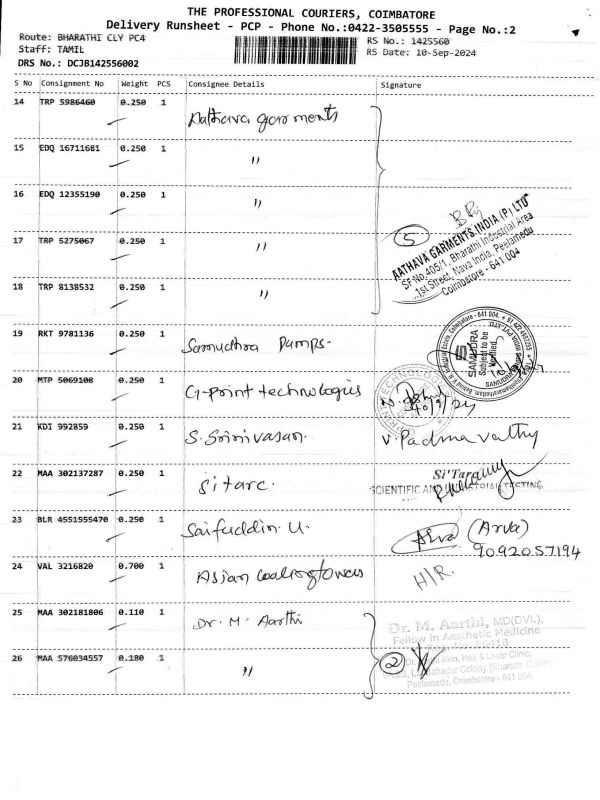 THE PROFESSIONAL COURIERS, COIMBATORE
Delivery Runsheet - PCP - Phone No.:0422-3505555 - Page No.:2
Route: BHARATHI CLY PC4
RS No.: 1425560
Staff: TAMIL
RS Date: 10-Sep-2024
DRS No.: DCJB142556002
S No Consignment No Weight PCS Consignee Details Signature
14 TRP 5986460 0.250 1 Aathava garments
15 EDQ 16711681 0.250 1 "
16 EDQ 12355190 0.250 1 "
17 TRP 5275067 0.250 1 "
18 TRP 8138532 0.250 1 "
5
AATHAVA GARMENTS INDIA (P) LTD
SF No.405/1, Bharathi Industrial Area
1st Street, Nava India, Peelamedu
Coimbatore - 641 004
19 RKT 9781136 0.250 1 Samudhra Pumps.
SAMUDRA
Subject to be
Verified
20 MTP 5069108 0.250 1 G-print technologies
10/9/24
21 KDI 992859 0.250 1 S. Srinivasan. V. Padmavathy
22 MAA 302137287 0.250 1 Sitarc.
Si'Tarc
SCIENTIFIC AND INDUSTRIAL TESTING
23 BLR 4551555470 0.250 1 Saifuddin U. (Arva)
9092057194
24 VAL 3216820 0.700 1 Asian coolingtowers H/R.
25 MAA 302181806 0.110 1 Dr. M. Aarthi
Dr. M. Aarthi, MD(DVL).
Fellow in Aesthetic Medicine
26 MAA 576034557 0.180 1 " 2
Skin, Hair & Laser Clinic,
Bahadur Colony (Bharathi Colony)
Peelamedu, Coimbatore - 641 004.